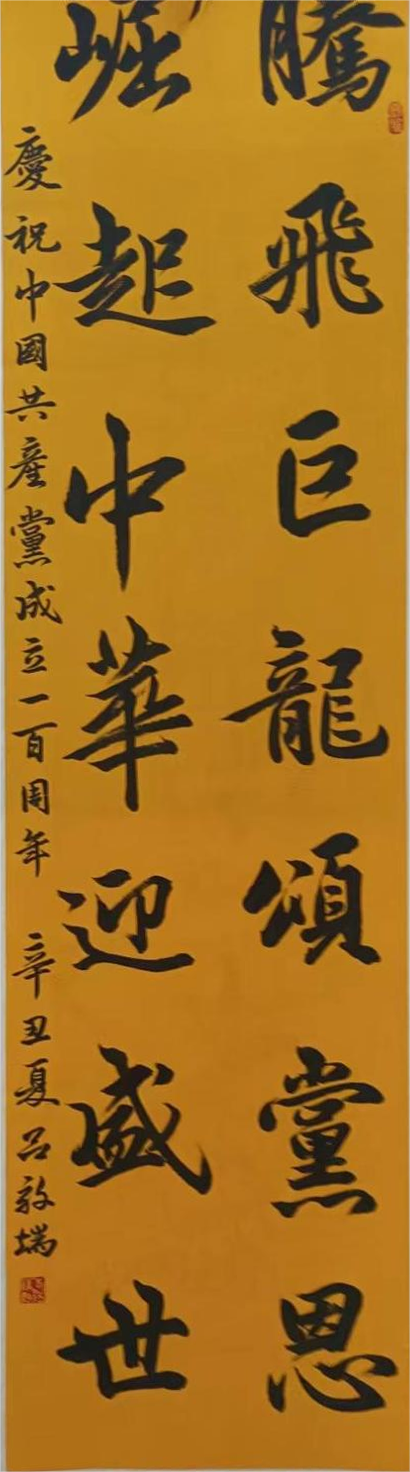 騰飛巨龍頌黨恩
崛起中華迎盛世
慶祝中國共產黨成立一百周年 辛丑夏呂敦瑞